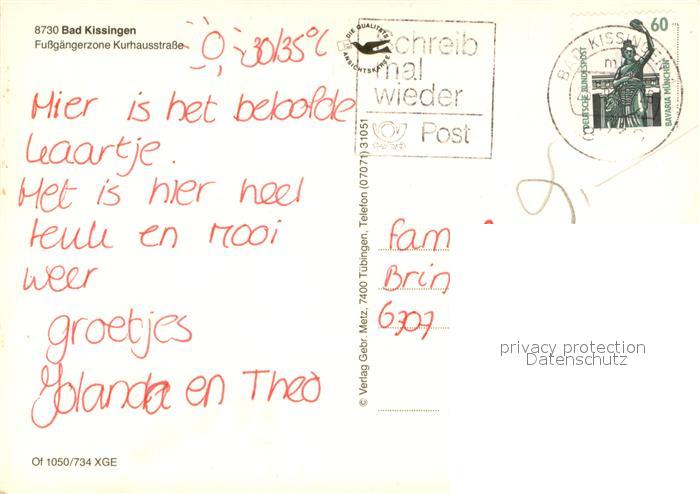 8730 Bad Kissingen
Fußgängerzone Kurhausstraße
30/35°C
DIE QUALITÄTS
ANSICHTSKARTE
Schreib
mal
wieder
Post
BAD KISSINGEN
60
DEUTSCHE BUNDESPOST
BAVARIA MÜNCHEN
Hier is het beloofde
kaartje.
Het is hier heel
leuk en mooi
weer
groetjes
Jolanda en Theo
© Verlag Gebr. Metz, 7400 Tübingen, Telefon (07071) 31051
Fam
Brin
6707
privacy protection
Datenschutz
Of 1050/734 XGE